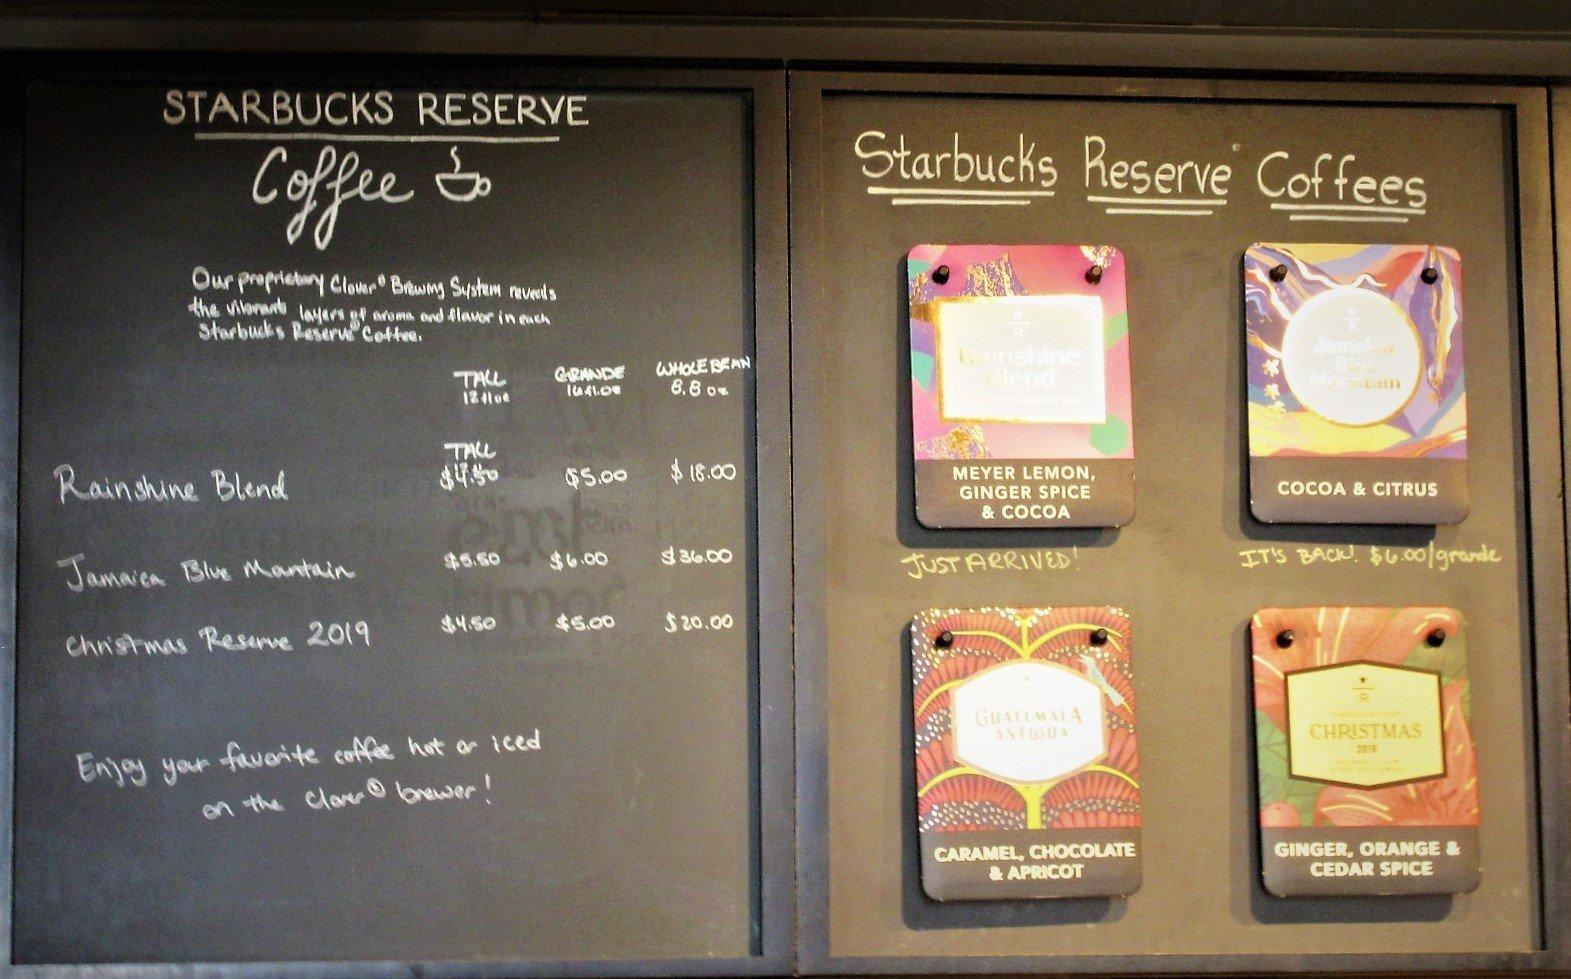 STARBUCKS RESERVE
Coffee
Our proprietary Clover® Brewing System reveals
the vibrant layers of aroma and flavor in each
Starbucks Reserve® Coffee.
TALL GRANDE WHOLE BEAN
12 fl oz 16 fl oz 8.8 oz
TALL
Rainshine Blend $4.50 $5.00 $18.00
Jamaica Blue Mountain $5.50 $6.00 $36.00
Christmas Reserve 2019 $4.50 $5.00 $20.00
Enjoy your favorite coffee hot or iced
on the Clover® brewer!
Starbucks Reserve Coffees
R.
Rainshine
Blend
MEYER LEMON,
GINGER SPICE
& COCOA
JUST ARRIVED!
R
Jamaica
Blue
Mountain
COCOA & CITRUS
IT'S BACK! $6.00/grande
GUATEMALA
ANTIGUA
CARAMEL, CHOCOLATE
& APRICOT
R.
CHRISTMAS
2019
GINGER, ORANGE &
CEDAR SPICE